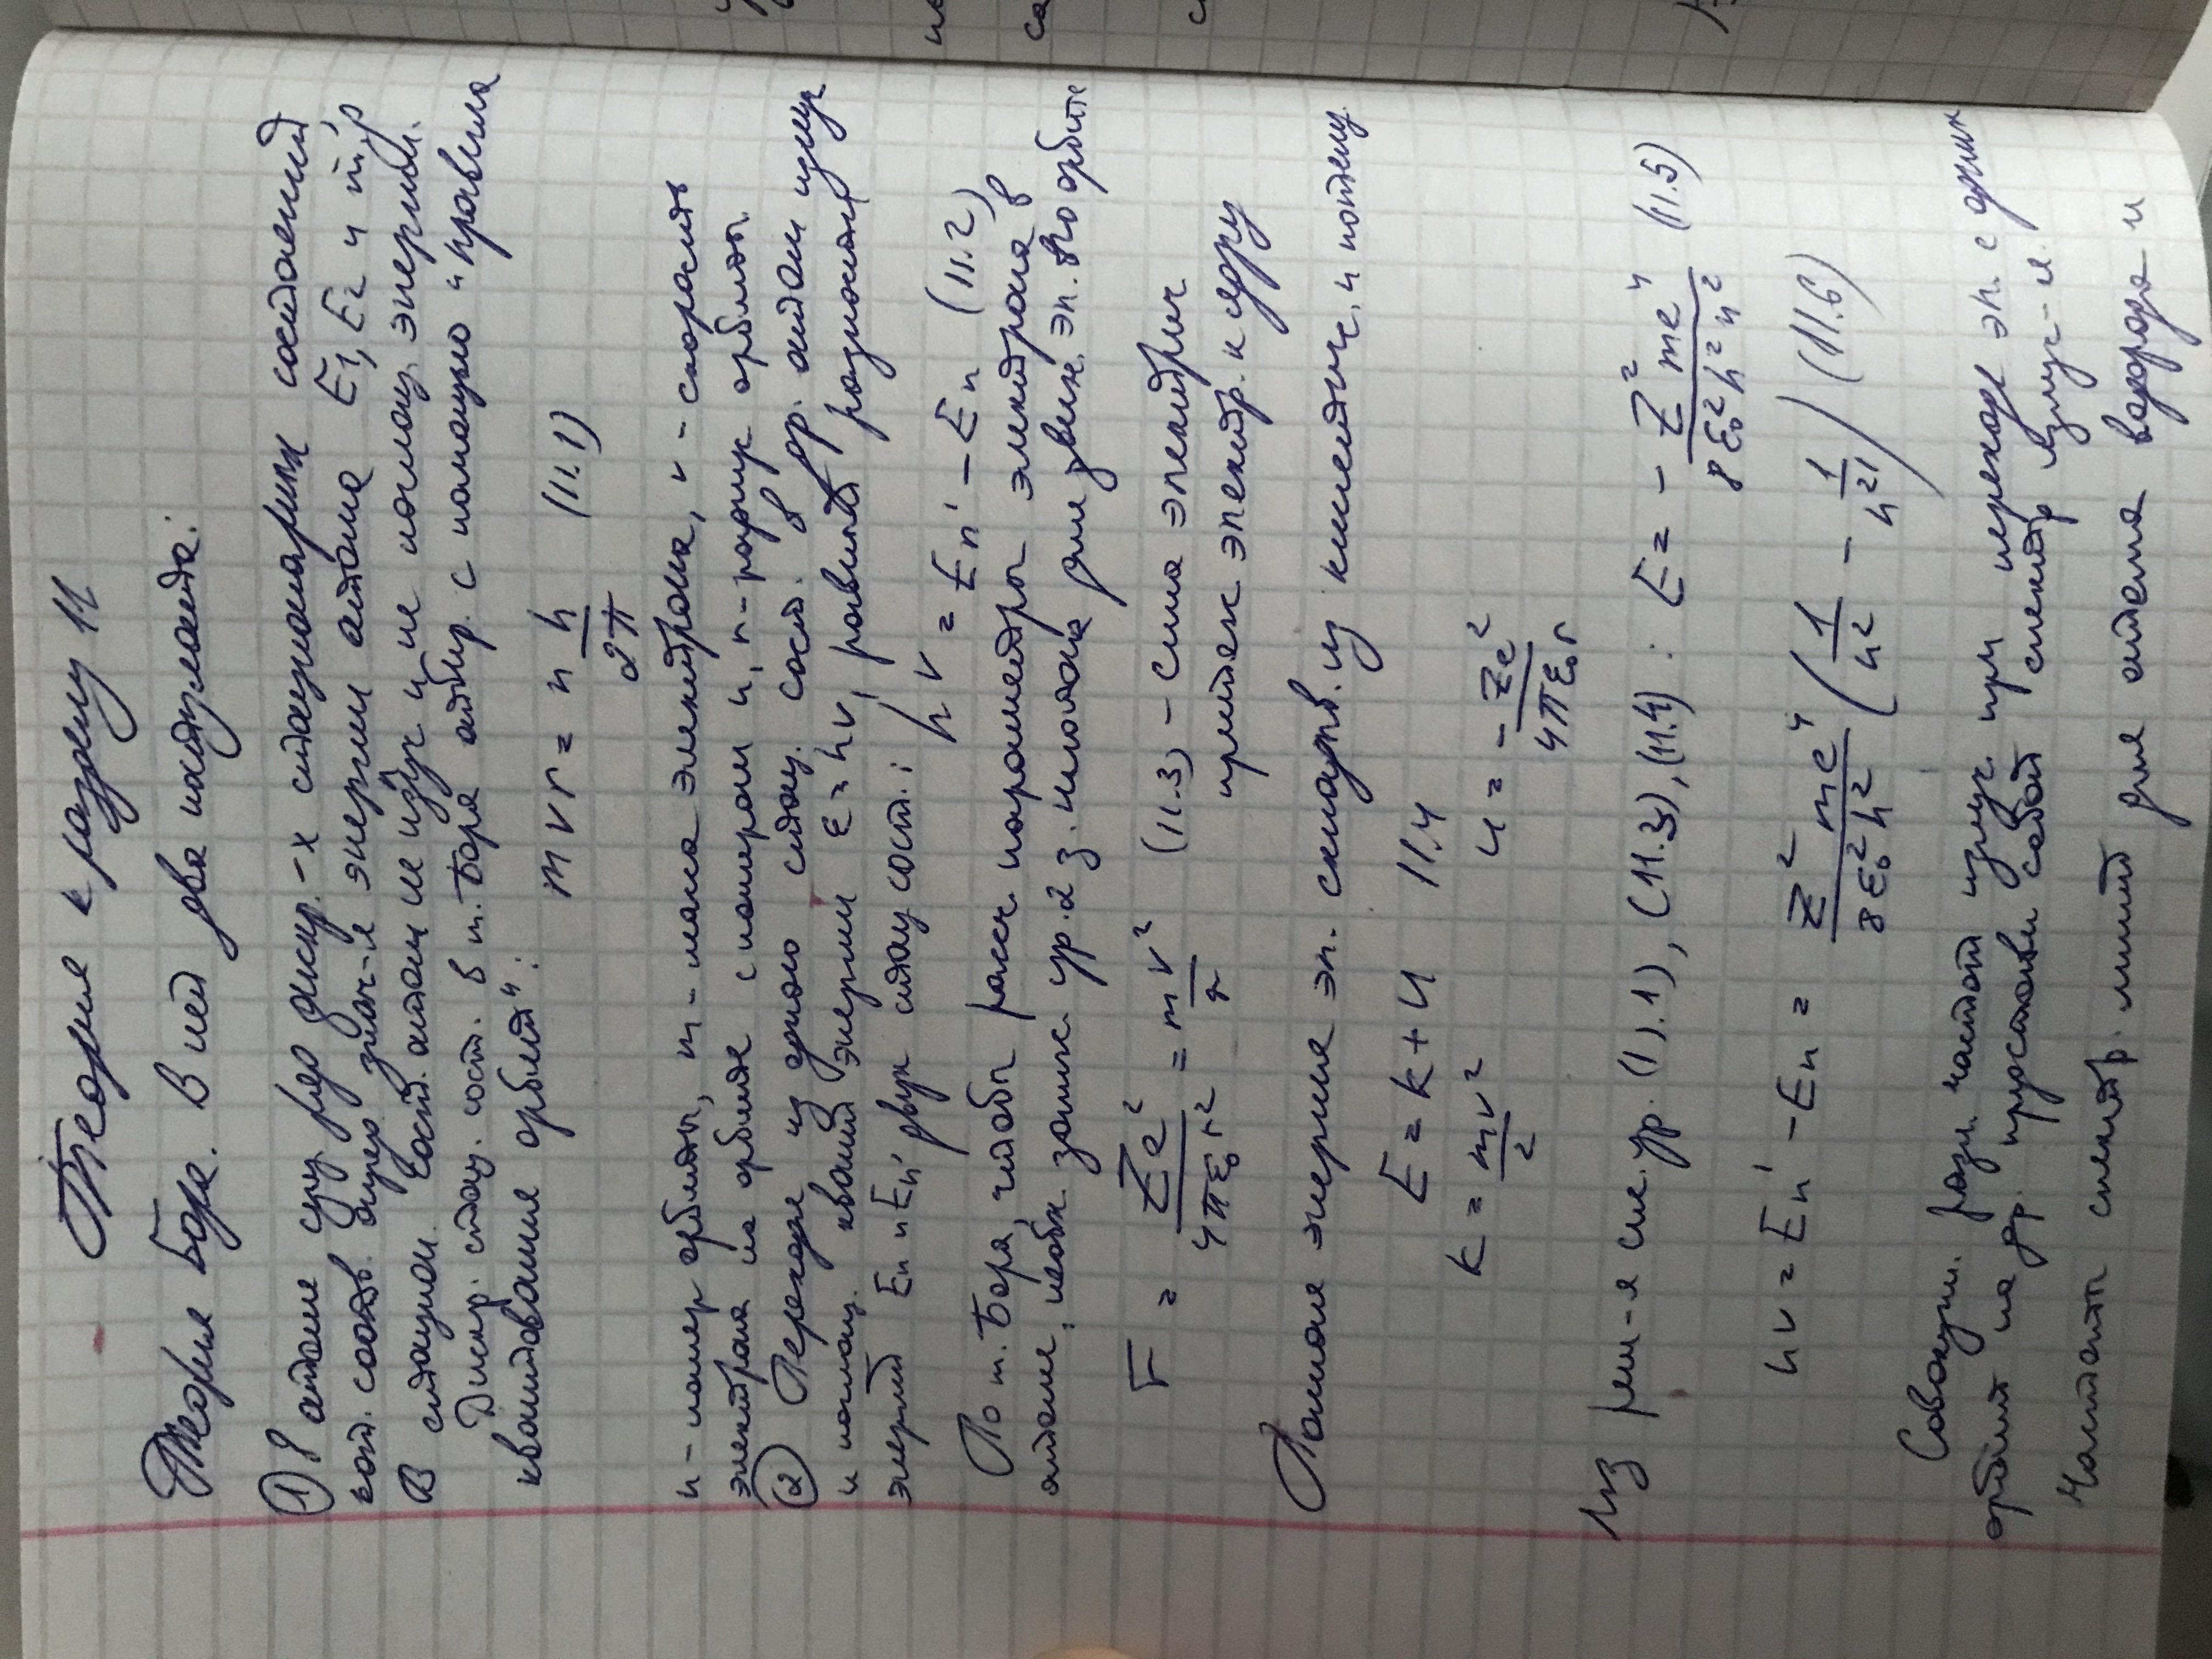 Теория к разделу 11
Теория Бора. В ней два постулата:
① В атоме сущ. ряд дискр.-х стационарных состояний,
кот. соотв. опред. знач-я энергии атома E1, E2 и т.д
В стацион. сост. атом не излуч и не поглощ. энергии.
Дискр. стац. сост. в т. Бора отбир. с помощью "правила
квантования орбит":
mvr = n h/2π (11.1)
n - номер орбиты, m - масса электрона, v - скорость
электрона на орбите с номером n, r - радиус орбиты.
② Переходя из одного стац. сост. в др. атом излуч
и поглощ. квант энергии ε = hν, равный разности
энергий En и En' двух стац сост.:
hν = En' - En (11.2)
По т. Бора, чтобы рассч. параметры электрона в
атоме, необх. запис. ур. 2 з. Ньютона для движ. эл. по орбите
F = Ze²/4πε₀r² = mv²/r (11.3) - сила электрич
притяж электр. к ядру
Полная энергия эл. складыв. из кинетич. и потенц.
E = K + U 11.4
K = mv²/2 U = -Ze²/4πε₀r
Из реш-я сис. ур. (11.1), (11.3), (11.4): E = - Z²me⁴/8ε₀²h²n² (11.5)
hν = En' - En = Z²me⁴/8ε₀²h² (1/n² - 1/n²') (11.6)
Совокупн. разл. частот излуч. при переходе эл. с одних
орбит на др. представл собой спектр излуч-я.
Частоты спектр. линий для атома водорода и